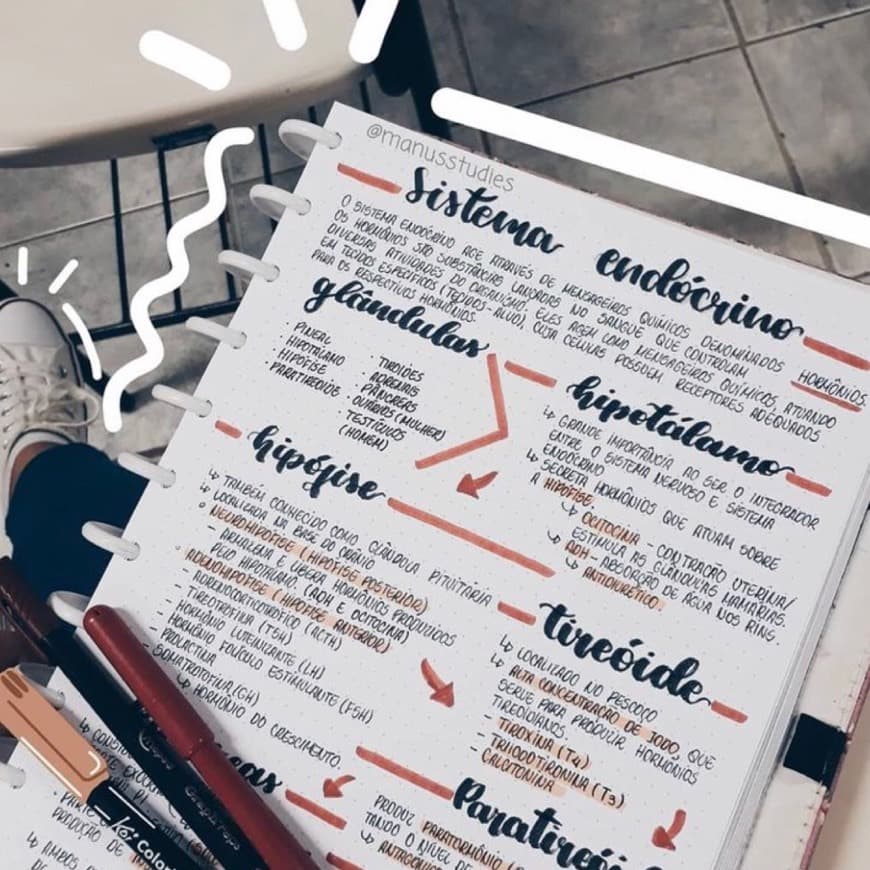 @manusstudies
Sistema endócrino
O SISTEMA ENDÓCRINO AGE ATRAVÉS DE MENSAGEIROS QUÍMICOS DENOMINADOS HORMÔNIOS.
OS HORMÔNIOS SÃO SUBSTÂNCIAS LANÇADAS NO SANGUE QUE CONTROLAM
DIVERSAS ATIVIDADES DO ORGANISMO, ELES AGEM COMO MENSAGEIROS QUÍMICOS, ATUANDO
EM TECIDOS ESPECÍFICOS (TECIDOS-ALVO), CUJA CÉLULAS POSSUEM RECEPTORES ADEQUADOS
PARA OS RESPECTIVOS HORMÔNIOS.
glândulas
· PINEAL
· HIPOTÁLAMO
· HIPÓFISE
· PARATIREOIDE
· TIROIDES
· ADRENAIS
· PÂNCREAS
· OVÁRIOS (MULHER)
· TESTÍCULOS
(HOMEM)
hipotálamo
↳ GRANDE IMPORTÂNCIA AO SER O INTEGRADOR
ENTRE O SISTEMA NERVOSO E SISTEMA
ENDÓCRINO
↳ SECRETA HORMÔNIOS QUE ATUAM SOBRE
A HIPÓFISE
↳ OCITOCINA - CONTRAÇÃO UTERINA/
ESTIMULA AS GLÂNDULAS MAMÁRIAS.
↳ ADH - ABSORÇÃO DE ÁGUA NOS RINS.
↳ ANTIDIURÉTICO
hipófise
↳ TAMBÉM CONHECIDO COMO GLÂNDULA PITUITÁRIA
↳ LOCALIZADA NA BASE DO CRÂNIO
○ NEUROHIPÓFISE (HIPÓFISE POSTERIOR)
- ARMAZENA E LIBERA HORMÔNIOS PRODUZIDOS
PELO HIPOTÁLAMO (ADH E OCITOCINA)
○ ADENOHIPÓFISE (HIPÓFISE ANTERIOR)
- ADRENOCORTICOTRÓFICO (ACTH)
- TIREOTROFINA (TSH)
- HORMÔNIO LUTEINIZANTE (LH)
- HORMÔNIO FOLÍCULO ESTIMULANTE (FSH)
- PROLACTINA
- SOMATROTOFINA (GH)
↳ HORMÔNIO DO CRESCIMENTO.
tireóide
↳ LOCALIZADO NO PESCOÇO
↳ ALTA CONCENTRAÇÃO DE IODO, QUE
SERVE PARA PRODUZIR HORMÔNIOS
TIREOIDIANOS.
- TIROXINA (T4)
- TRIIODOTIRONINA (T3)
- CALCITONINA
Paratireói
PRODUZ PARATORMÔNIO
TANDO O NÍVEL DE
↳ ANTAGÔNI
eas
PARTE
PRODUÇÃO DE
↳ AMBOS